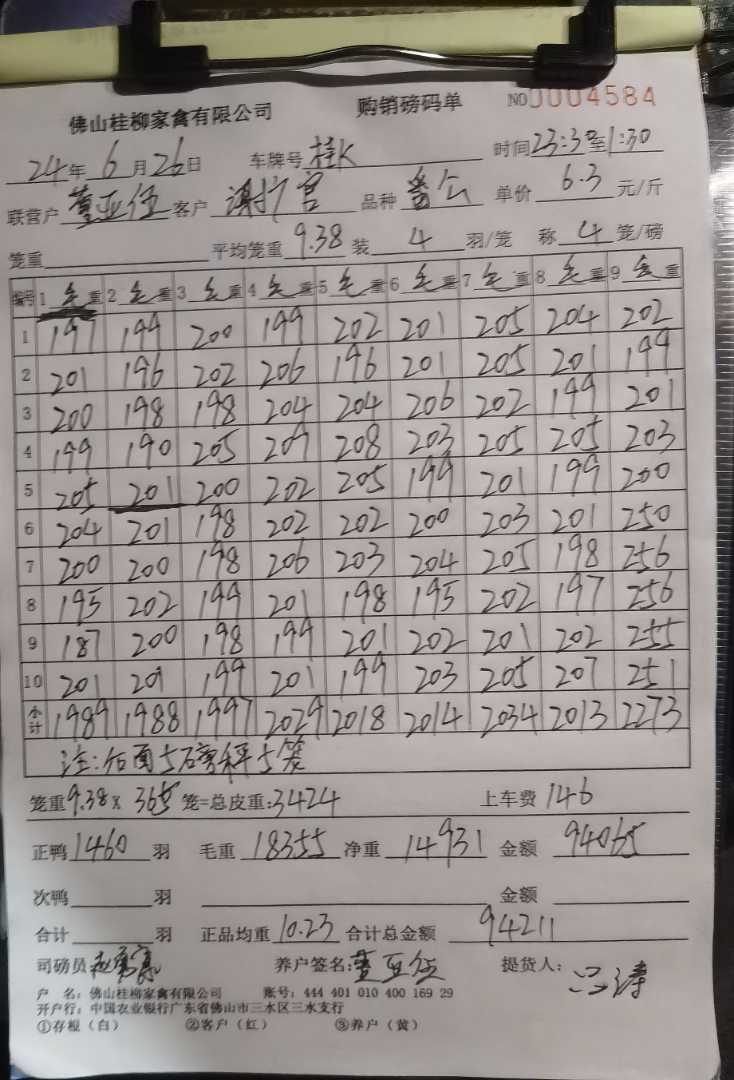 佛山桂柳家禽有限公司 购销磅码单 NO0004584
24年6月26日 车牌号 桂K 时间23:30至1:30
联营户 客户 品种 番公 单价 6.3 元/斤
笼重 平均笼重 9.38 装 4 羽/笼 称 4 笼/磅
编号 1 毛重 2 毛重 3 毛重 4 毛重 5 毛重 6 毛重 7 毛重 8 毛重 9 毛重
1 197 199 200 199 202 201 205 204 202
2 201 196 202 206 196 201 205 201 199
3 200 198 198 204 204 206 202 199 201
4 199 190 205 209 208 203 205 205 203
5 205 201 200 202 205 199 201 199 200
6 204 201 198 202 202 200 203 201 250
7 200 200 198 206 203 204 205 198 256
8 195 202 199 201 198 195 202 197 256
9 187 200 198 199 201 202 201 202 255
10 201 201 199 201 199 203 205 207 251
小计 1989 1988 1997 2029 2018 2014 2034 2013 2273
注:后面5磅秤5笼
笼重9.38X 365笼=总皮重:3424 上车费 146
正鸭1460羽 毛重 18355 净重 14931 金额 94065
次鸭 羽 金额
合计 羽 正品均重 10.23 合计总金额 94211
司磅员 养户签名: 提货人:
户 名:佛山桂柳家禽有限公司 账号:444 401 010 400 169 29
开户行:中国农业银行广东省佛山市三水区三水支行
①存根(白) ②客户(红) ③养户(黄)